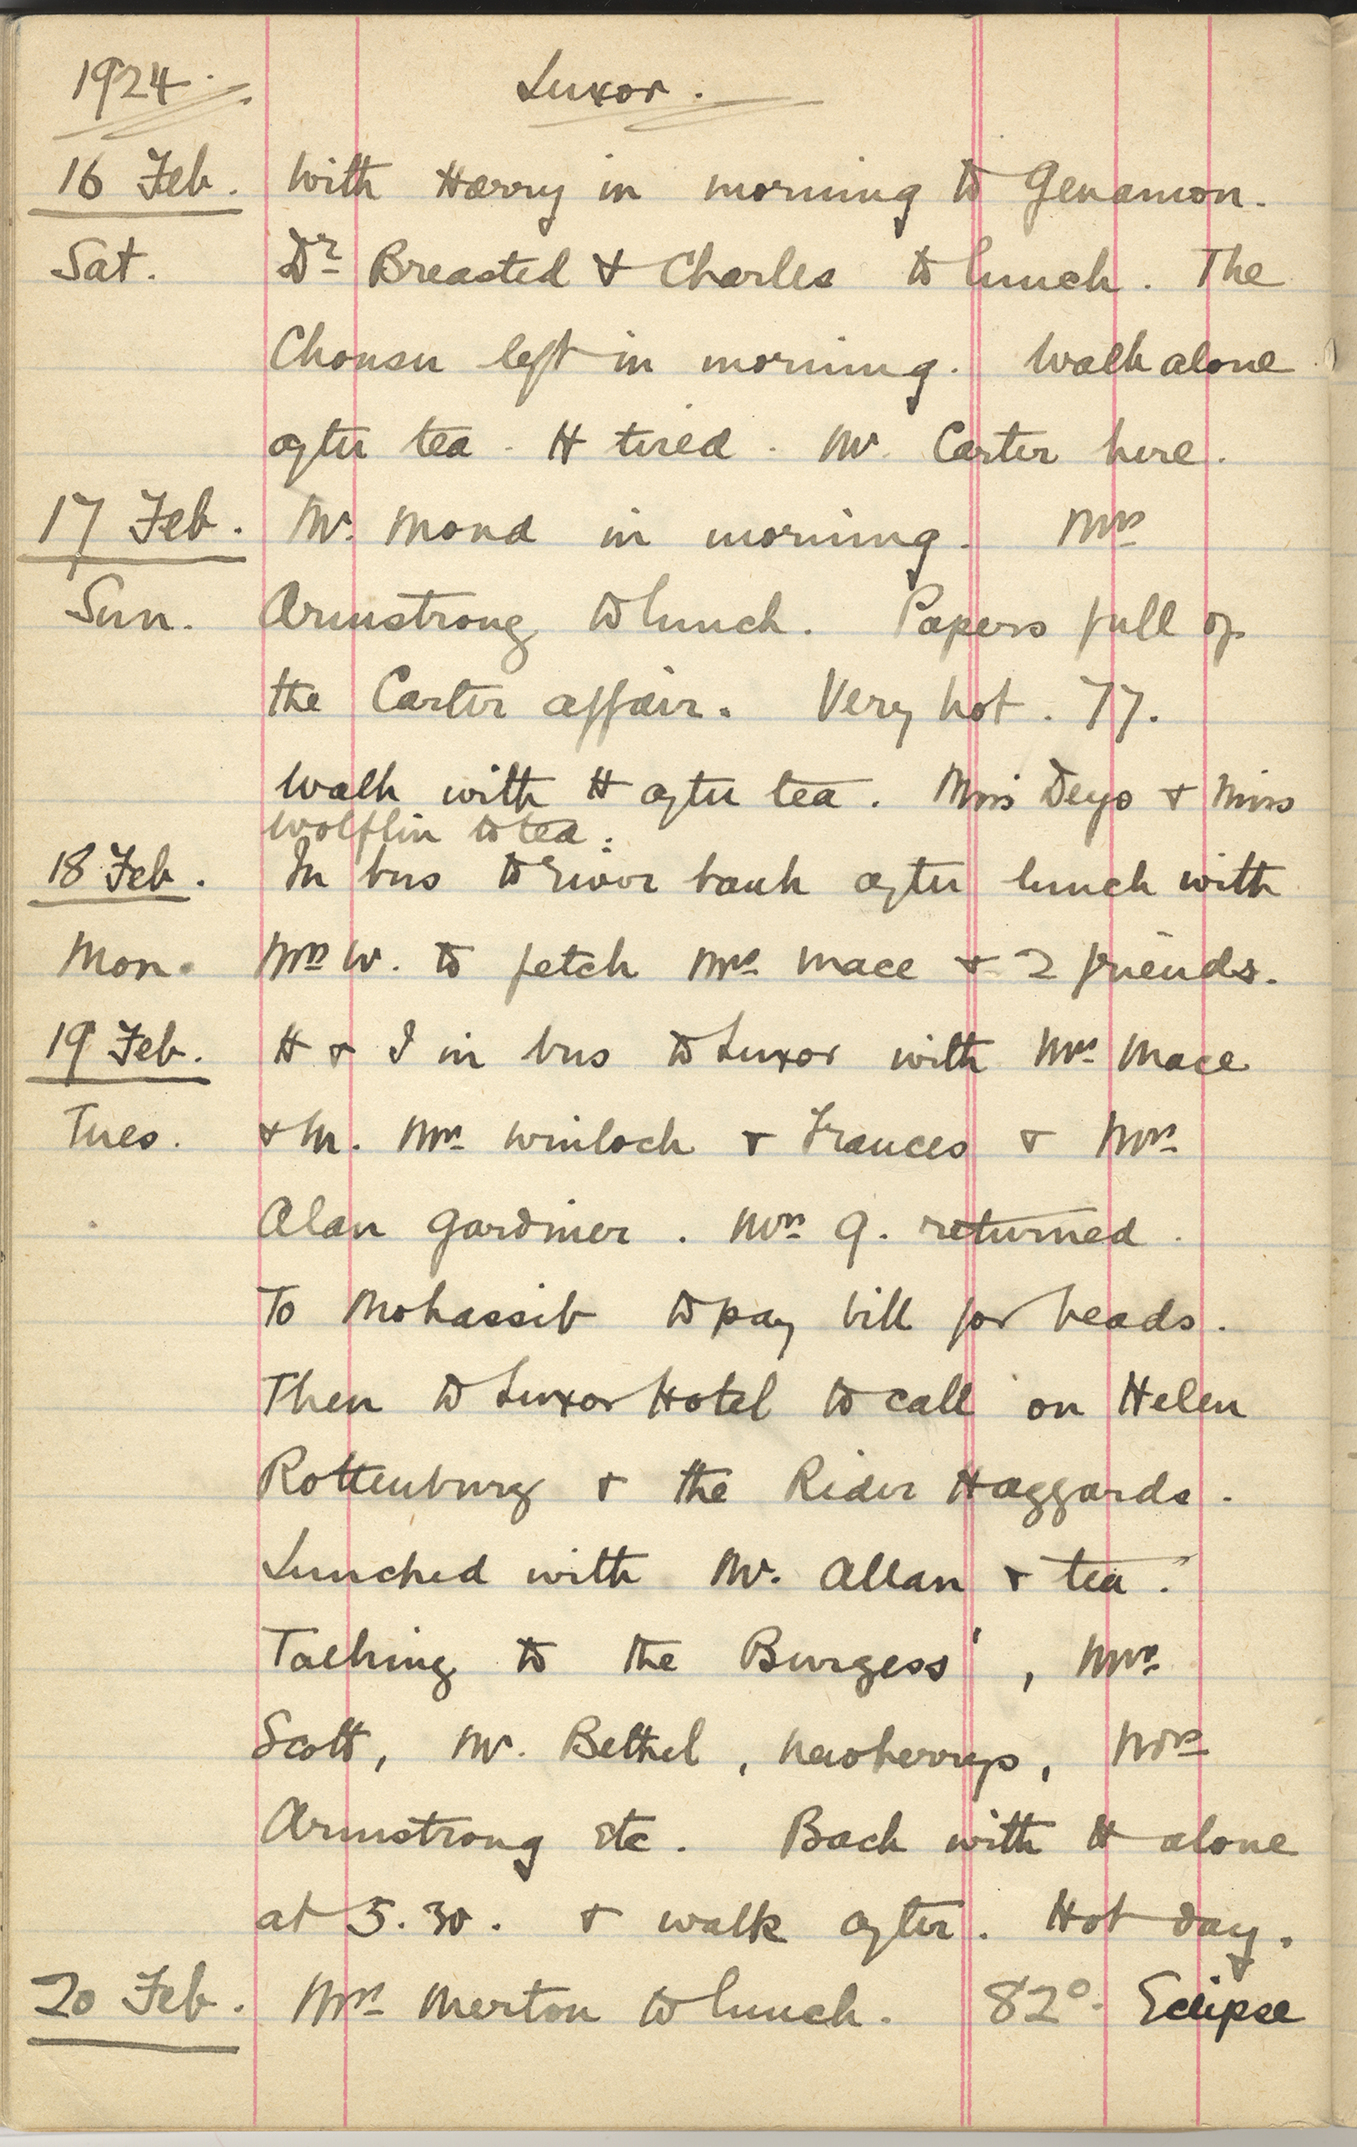 1924. Luxor.
16 Feb. With Harry in morning to Genamon.
Sat. Dr Breasted + Charles to lunch. The
Chonsu left in morning. Walk alone
after tea. H tired. Mr. Carter here.
17 Feb. Mr. Mond in morning. Mrs
Sun. Armstrong to lunch. Papers full of
the Carter affair. Very hot. 77.
Walk with H after tea. Miss Deyo + Miss
Wolfflin to tea.
18 Feb. In bus to river bank after lunch with
Mon. Mrs W. to fetch Mrs Mace + 2 friends.
19 Feb. H + I in bus to Luxor with Mrs Mace
Tues. + M. Mrs Winlock + Frances + Mrs
Alan Gardiner. Mrs G. returned.
To Mohassib to pay bill for beads.
Then to Luxor Hotel to call on Helen
Rottenburg + the Rider Haggards.
Lunched with Mr. Allan + tea.
Talking to the Burgess', Mrs
Scott, Mr. Bethel, Newberrys, Mrs
Armstrong etc. Back with H alone
at 5.30. + walk after. Hot day.
20 Feb. Mrs Merton to lunch. 82°. Eclipse